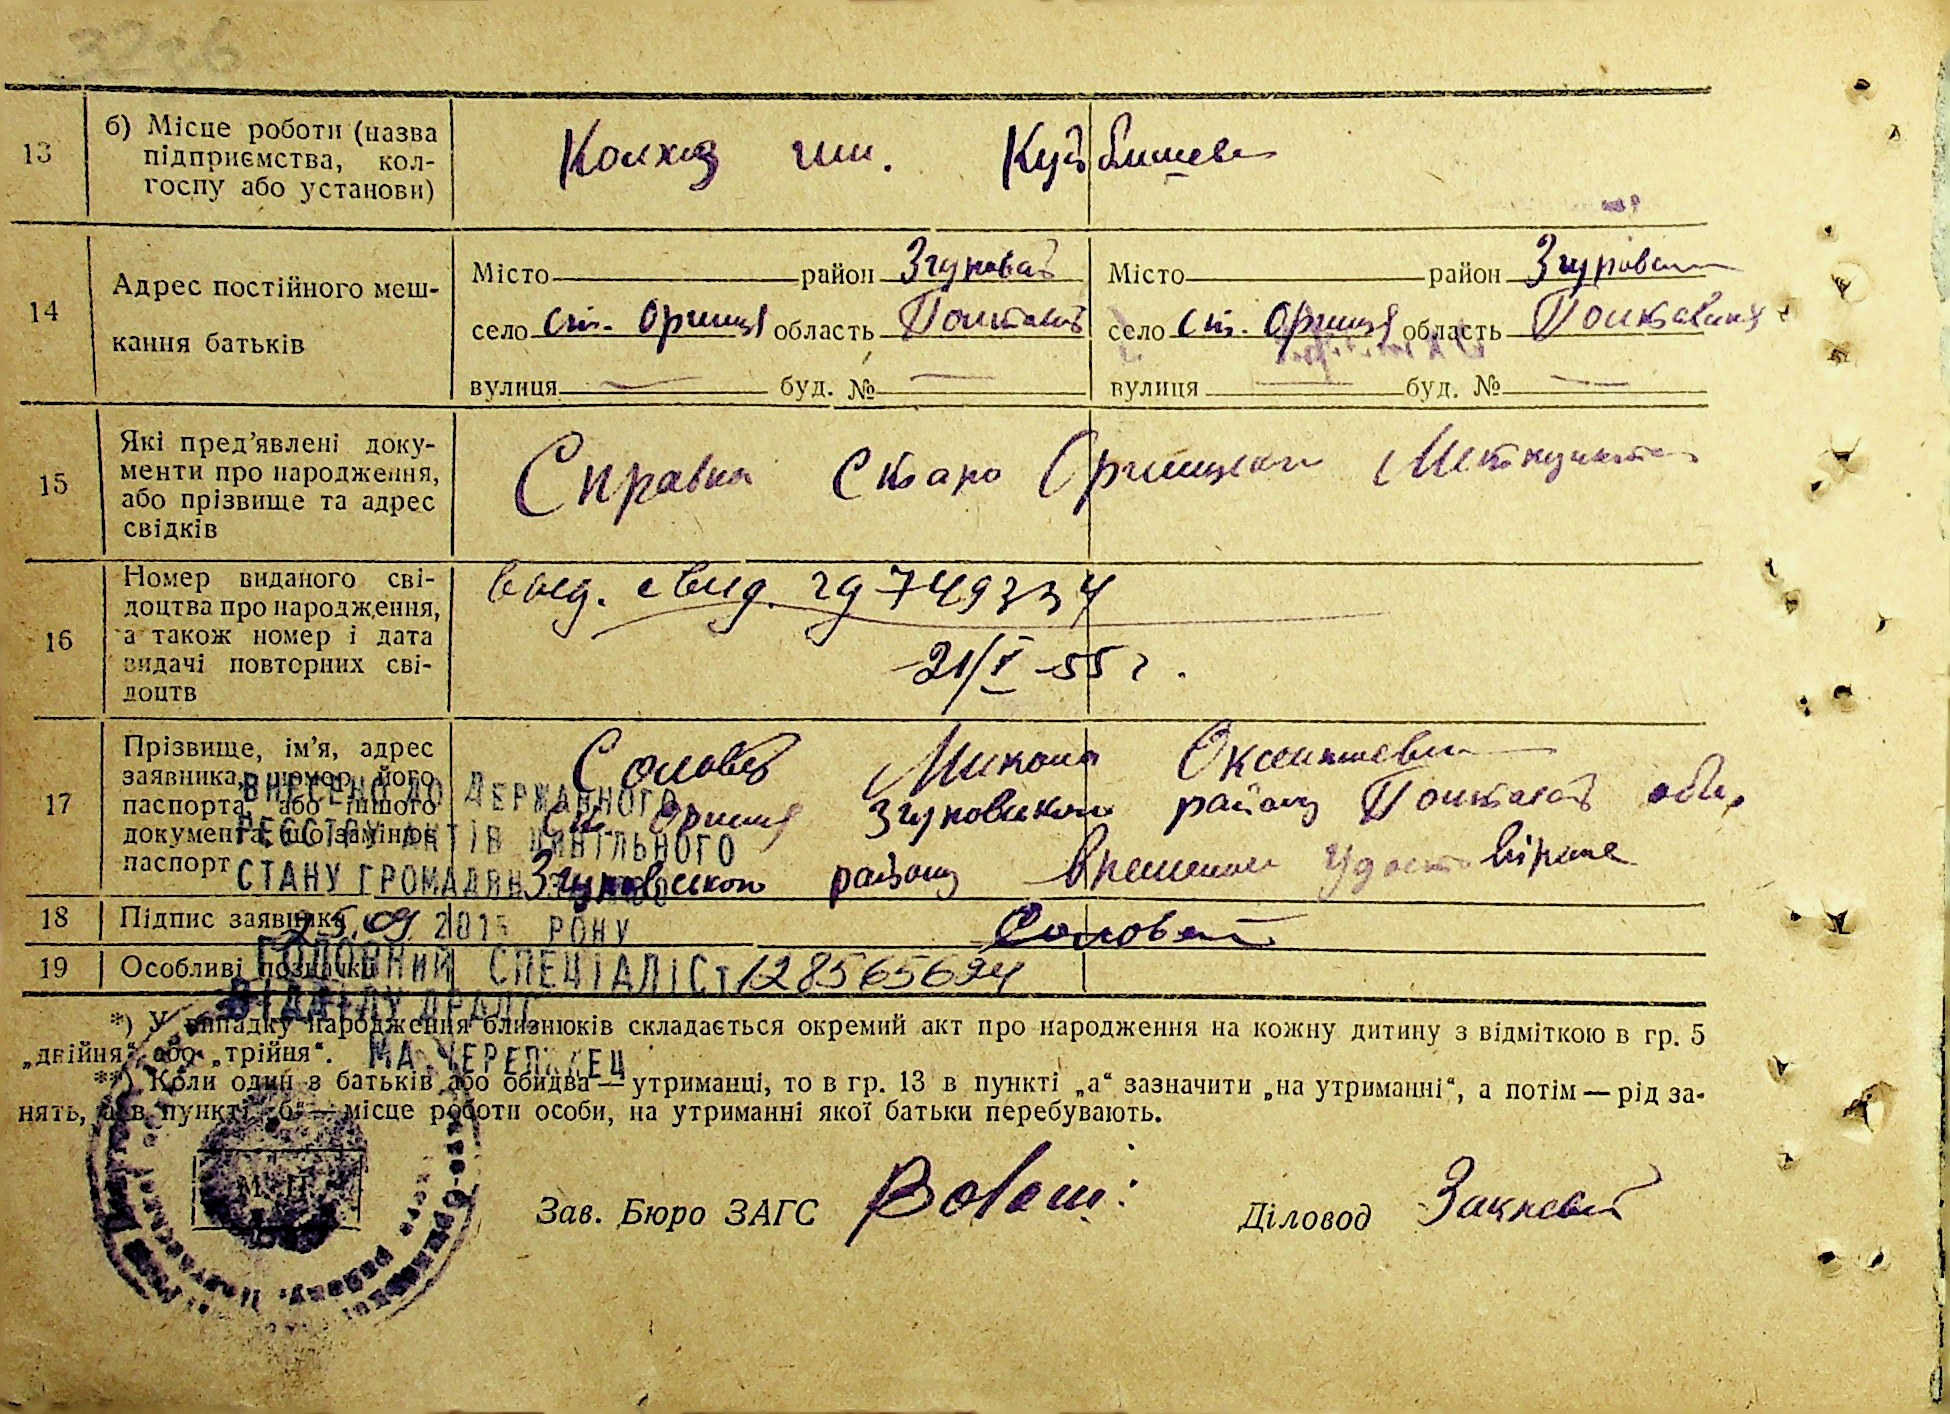 13
б) Місце роботи (назва
підприємства, кол-
госпу або установи)
Колхоз им. Куйбишева
14
Адрес постійного меш-
кання батьків
Місто район Згуровск Місто район Згуровск
село ст. Оржиця область Полтавск село ст. Оржиця область Полтавська
вулиця — буд. № — вулиця — буд. № —
15
Які пред’явлені доку-
менти про народження,
або прізвище та адрес
свідків
Справка Старо Оржицкого Медпункта
16
Номер виданого сві-
доцтва про народження,
а також номер і дата
видачі повторних сві-
доцтв
выд. свид. 749334
21/I-55 г.
17
Прізвище, ім’я, адрес
заявника, номер його
паспорта, або іншого
документа, що замінює
паспорт
Соловей Микола
ст. Оржиця Згуровского району Полтавск обл,
Згуровского району
18
Підпис заявника
Соловей
19
Особливі позначки
128565694
ВНЕСЕНО ДО ДЕРЖАВНОГО
РЕЄСТРУ АКТІВ ЦИВІЛЬНОГО
СТАНУ ГРОМАДЯН
25.09. 2015 РОКУ
ГОЛОВНИЙ СПЕЦІАЛІСТ
ВІДДІЛУ ДРАЦС
*) У випадку народження близнюків складається окремий акт про народження на кожну дитину з відміткою в гр. 5
„двійня“ або „трійня“.
**) Коли один з батьків або обидва — утриманці, то в гр. 13 в пункті „а“ зазначити „на утриманні“, а потім — рід за-
нять, а в пункті „б“ — місце роботи особи, на утриманні якої батьки перебувають.
М. П.
Зав. Бюро ЗАГС
Діловод